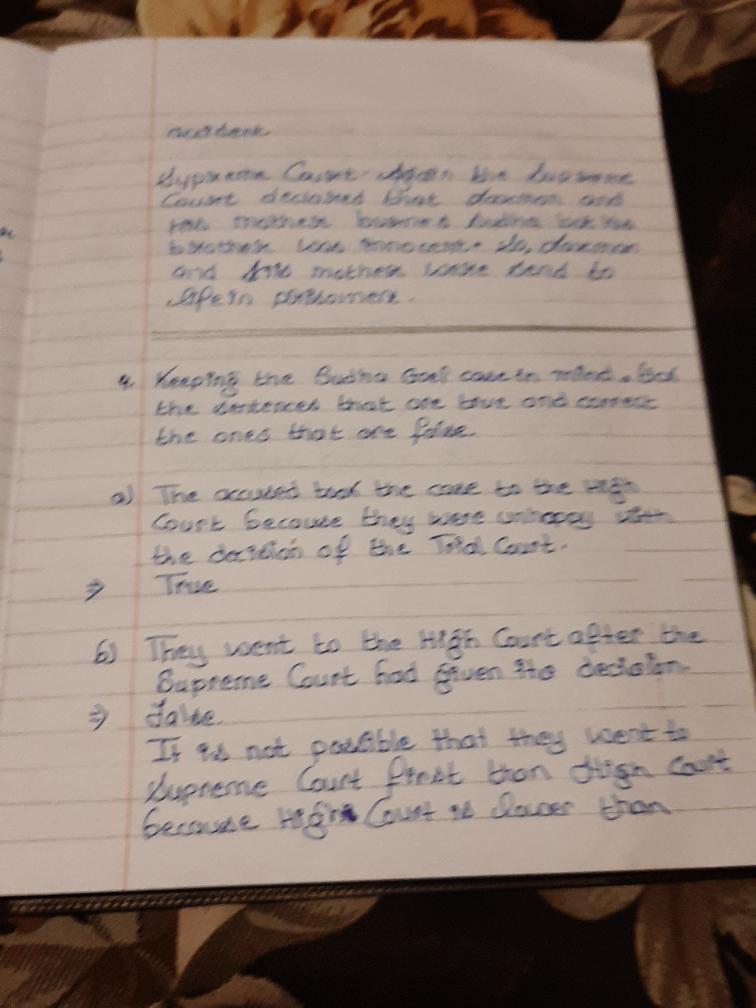 accident
Supreme Court. Again the Supreme
Court declared that daxman and
his mother burned Sudha
brother was innocence. So, daxman
and his mother were send to
life in
4. Keeping the Sudha Goel case in mind, tick
the sentences that are true and correct
the ones that are false.
a) The accused took the case to the High
Court because they were unhappy with
the decision of the Trial Court.
⇒ True
b) They went to the High Court after the
Supreme Court had given its decision.
⇒ False.
It is not possible that they went to
Supreme Court first than High Court
because High Court is lower than